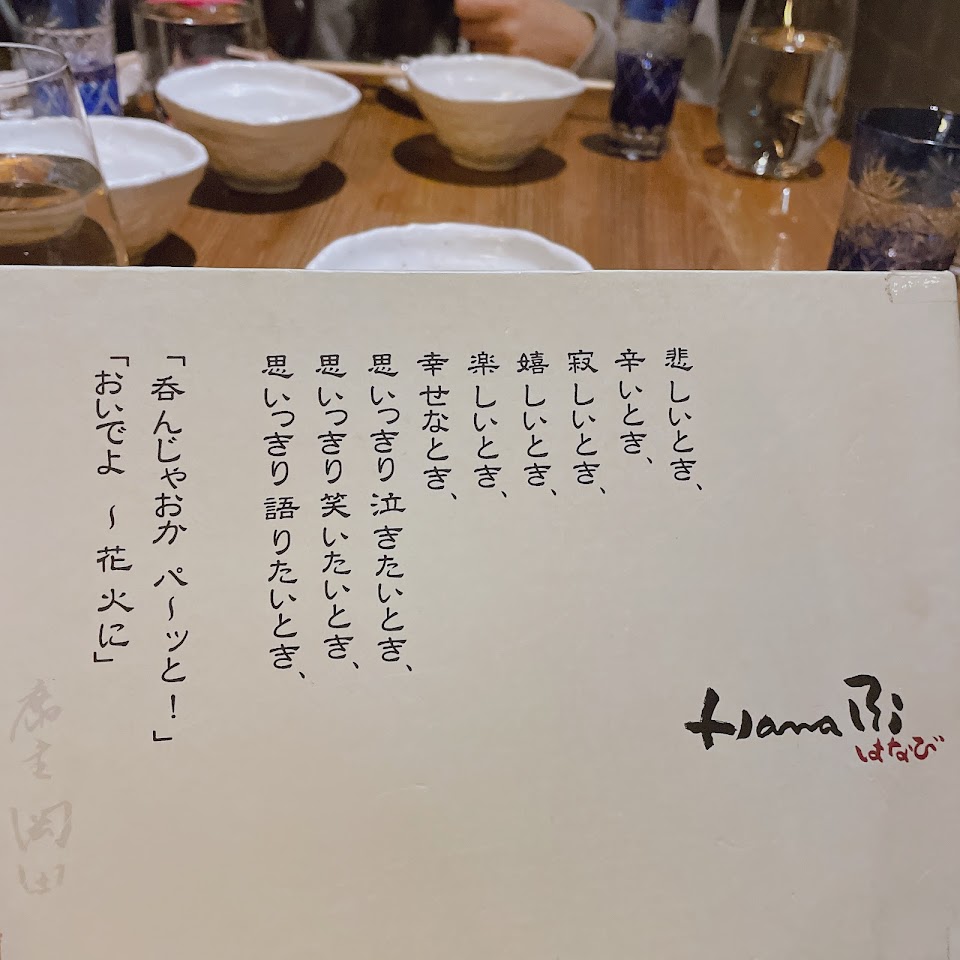 悲しいとき、
辛いとき、
寂しいとき、
嬉しいとき、
楽しいとき、
幸せなとき、
思いっきり泣きたいとき、
思いっきり笑いたいとき、
思いっきり語りたいとき、
「呑んじゃおか パ～ッと！」
「おいでよ ～花火に」
席主 岡田
Hanaび
はなび